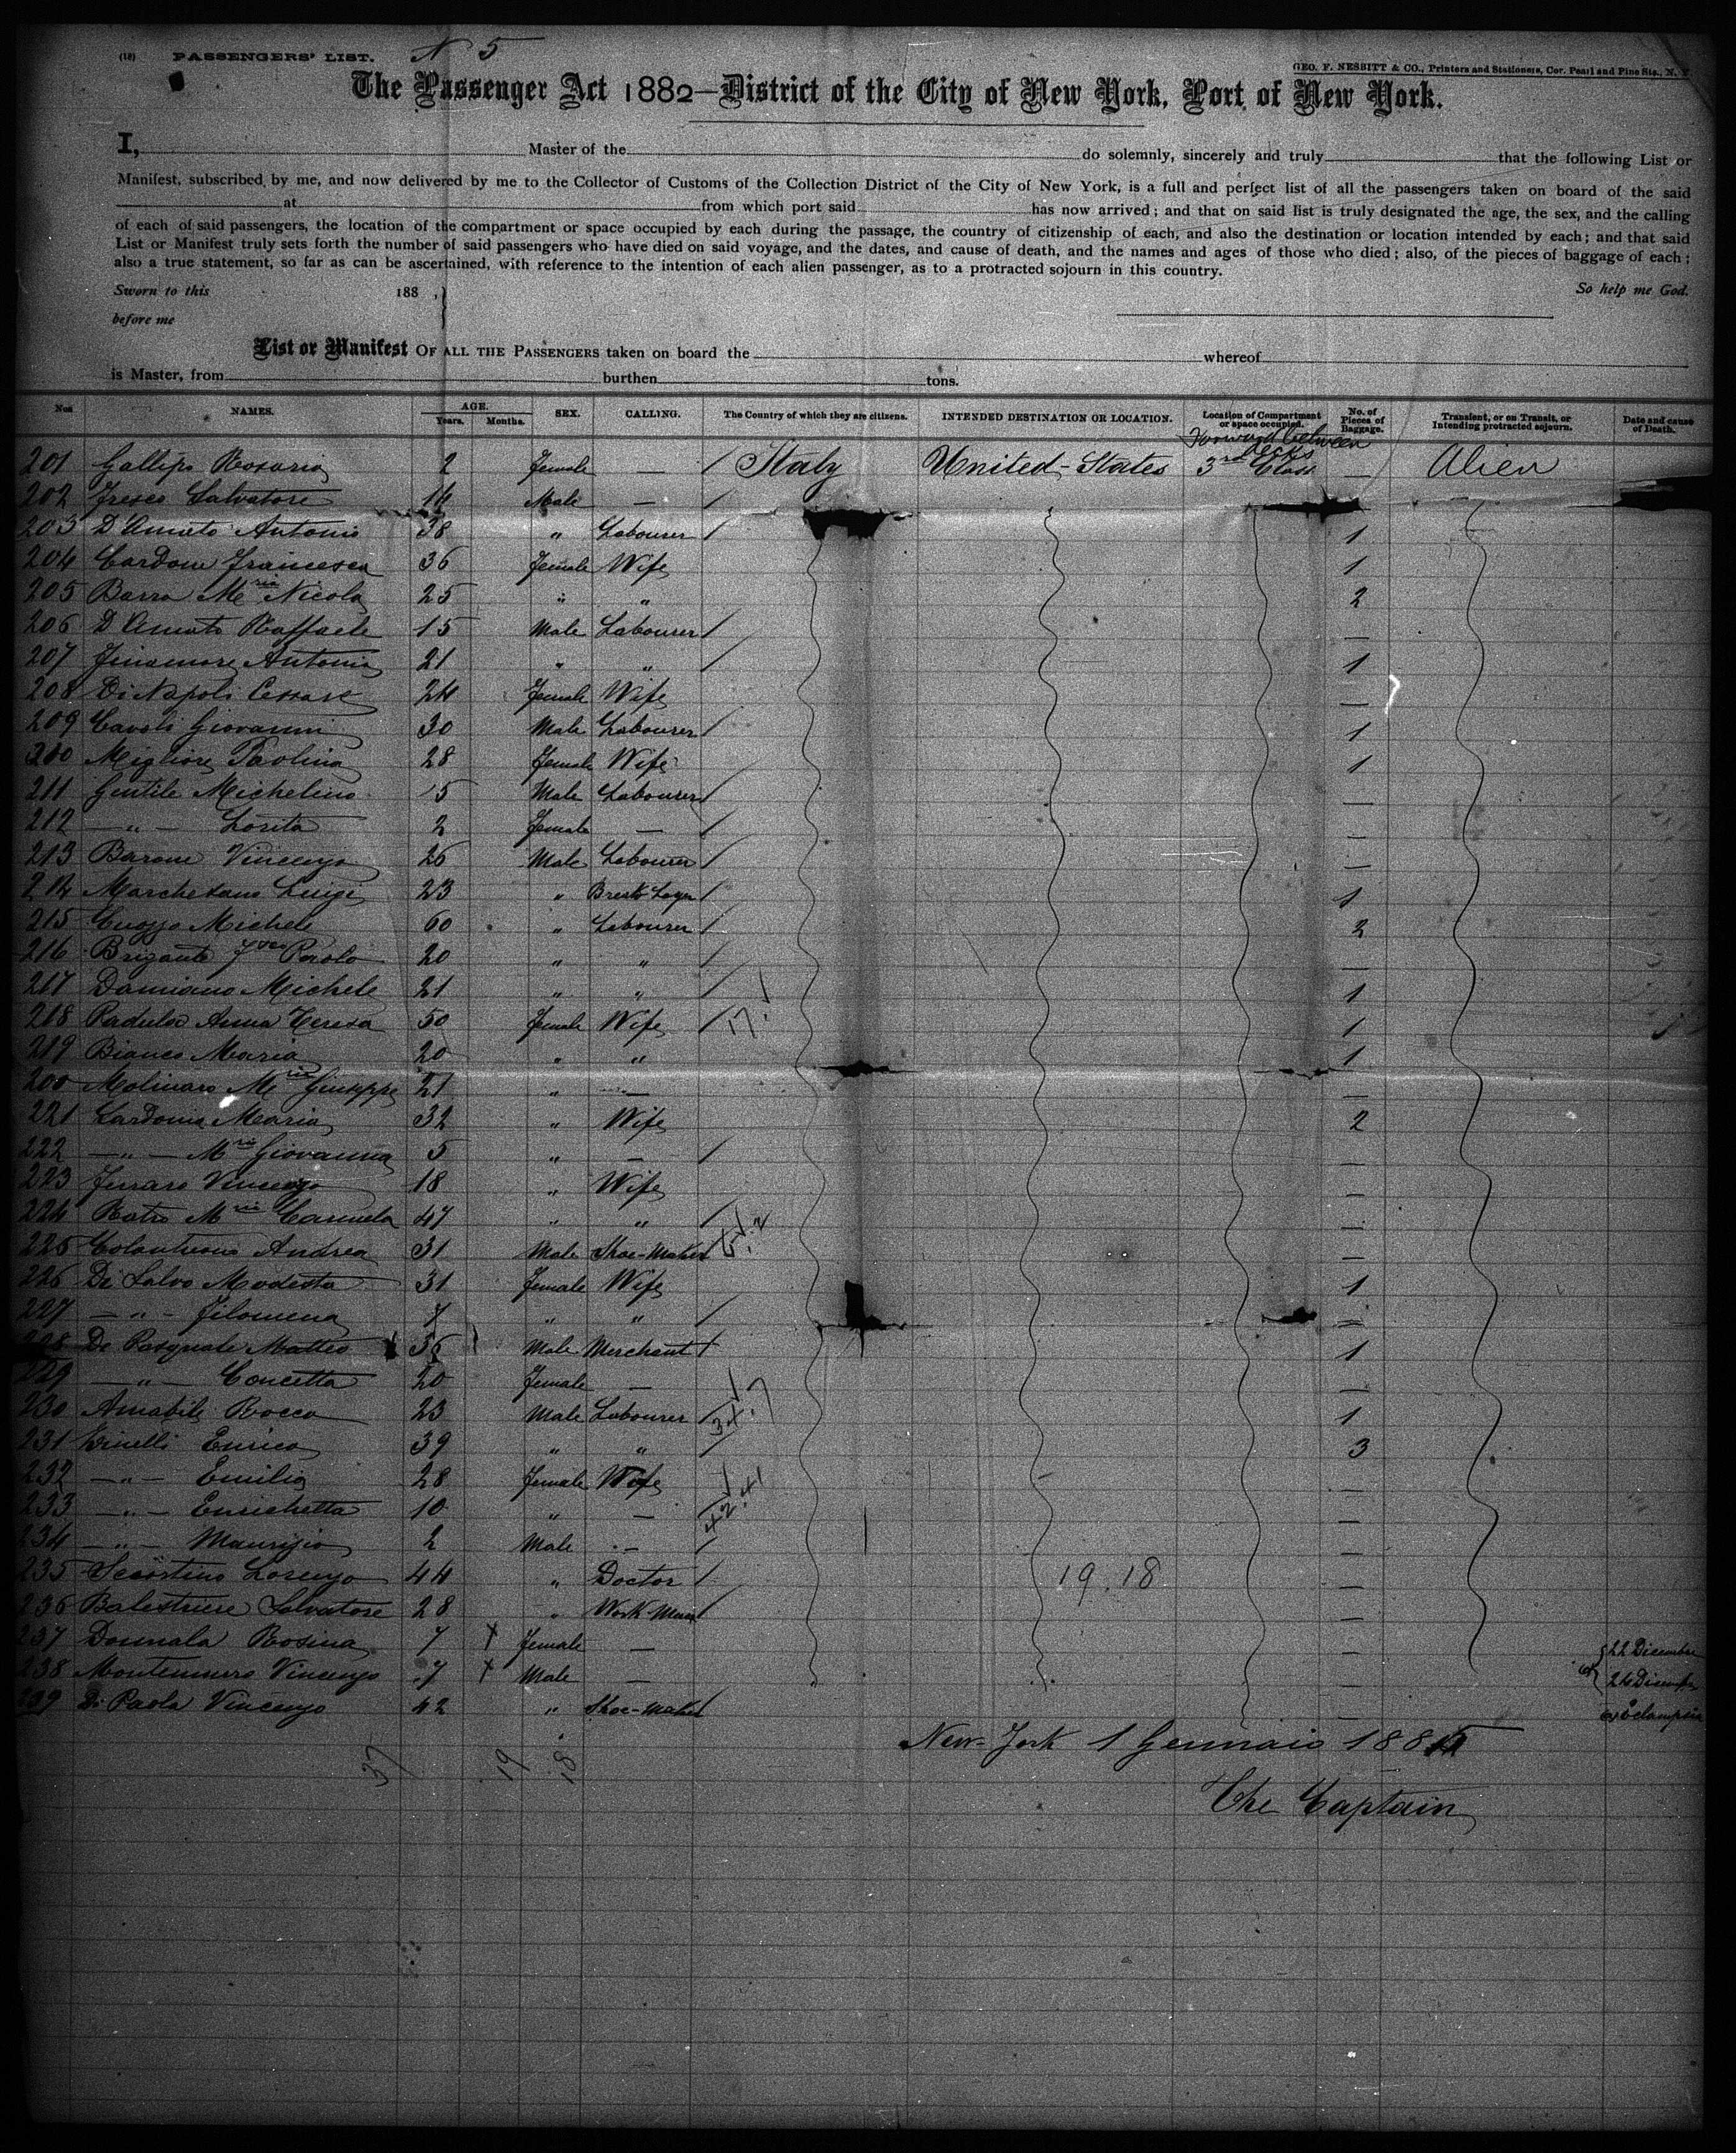 (18) PASSENGERS' LIST. N 5
GEO. F. NESBITT & CO., Printers and Stationers, Cor. Pearl and Pine Sts., N. Y.
The Passenger Act 1882—District of the City of New York, Port of New York.
I, Master of the do solemnly, sincerely and truly that the following List or
Manifest, subscribed by me, and now delivered by me to the Collector of Customs of the Collection District of the City of New York, is a full and perfect list of all the passengers taken on board of the said
at from which port said has now arrived; and that on said list is truly designated the age, the sex, and the calling
of each of said passengers, the location of the compartment or space occupied by each during the passage, the country of citizenship of each, and also the destination or location intended by each; and that said
List or Manifest truly sets forth the number of said passengers who have died on said voyage, and the dates, and cause of death, and the names and ages of those who died; also, of the pieces of baggage of each;
also a true statement, so far as can be ascertained, with reference to the intention of each alien passenger, as to a protracted sojourn in this country.
Sworn to this 188 , So help me God.
before me
List or Manifest OF ALL THE PASSENGERS taken on board the whereof
is Master, from burthen tons.
Nos NAMES. AGE. Years. Months. SEX. CALLING. The Country of which they are citizens. INTENDED DESTINATION OR LOCATION. Location of Compartment or space occupied. No. of Pieces of Baggage. Transient, or on Transit, or Intending protracted sojourn. Date and cause of Death.
Forward between decks
201 Gallipo Rosaria 2 Female — Italy United-States 3rd Class — Alien
202 Fresco Salvatore 14 Male —
203 D'Amato Antonio 38 " Labourer 1
204 Cardone Francesca 36 Female Wife 1
205 Barra Mria Nicola 25 " " 2
206 D'Amato Raffaele 15 Male Labourer —
207 Finamore Antonio 21 " " 1
208 Di Napoli 24 Female Wife —
209 Giovanni 30 Male Labourer 1
210 Migliore Paolina 28 Female Wife 1
211 Gentile Michelino 5 Male Labourer —
212 — " — Lorita 2 Female — —
213 Barone Vincenzo 26 Male Labourer —
214 Marchesano Luigi 23 " 1
215 Cuozzo Michele 60 " Labourer 2
216 Brigante Paolo 20 " " —
217 Damiano Michele 21 " " 1
218 Padula Anna Teresa 50 Female Wife 17. 1
219 Bianco Maria 20 " " 1
200 Molinaro Mria Giuseppe 21 " — —
221 Cardona Maria 32 " Wife 2
222 — " — Mria Giovanna 5 " — —
223 Ferraro Vincenzo 18 " Wife —
224 Mria Carmela 47 " " —
225 Colantuono Andrea 31 Male Shoe-Maker —
226 Di Salvo Modesta 31 Female Wife 1
227 — " — Filomena 7 " " —
228 De Pasquale Matteo 36 Male Merchant 1
229 — " — Concetta 20 Female — —
230 Amabile Rocco 23 Male Labourer 34.7 1
231 Enrico 39 " " 3
232 — " — Emilia 28 Female Wife —
233 — " — Enrichetta 10 " — 42.41 —
234 — " — Maurizio 2 Male — —
235 Lorenzo 44 " Doctor 19.18 —
236 Balestriere Salvatore 28 " Work-Man —
237 Donnala Rosina 7 Female — — 22 Dicembre
238 Montemurro Vincenzo 7 Male — — 24 Dicembre
239 Di Paola Vincenzo 42 " Shoe-Maker — Eclampsia
New-York 1 Gennaio 1885
37 19 18
The Captain